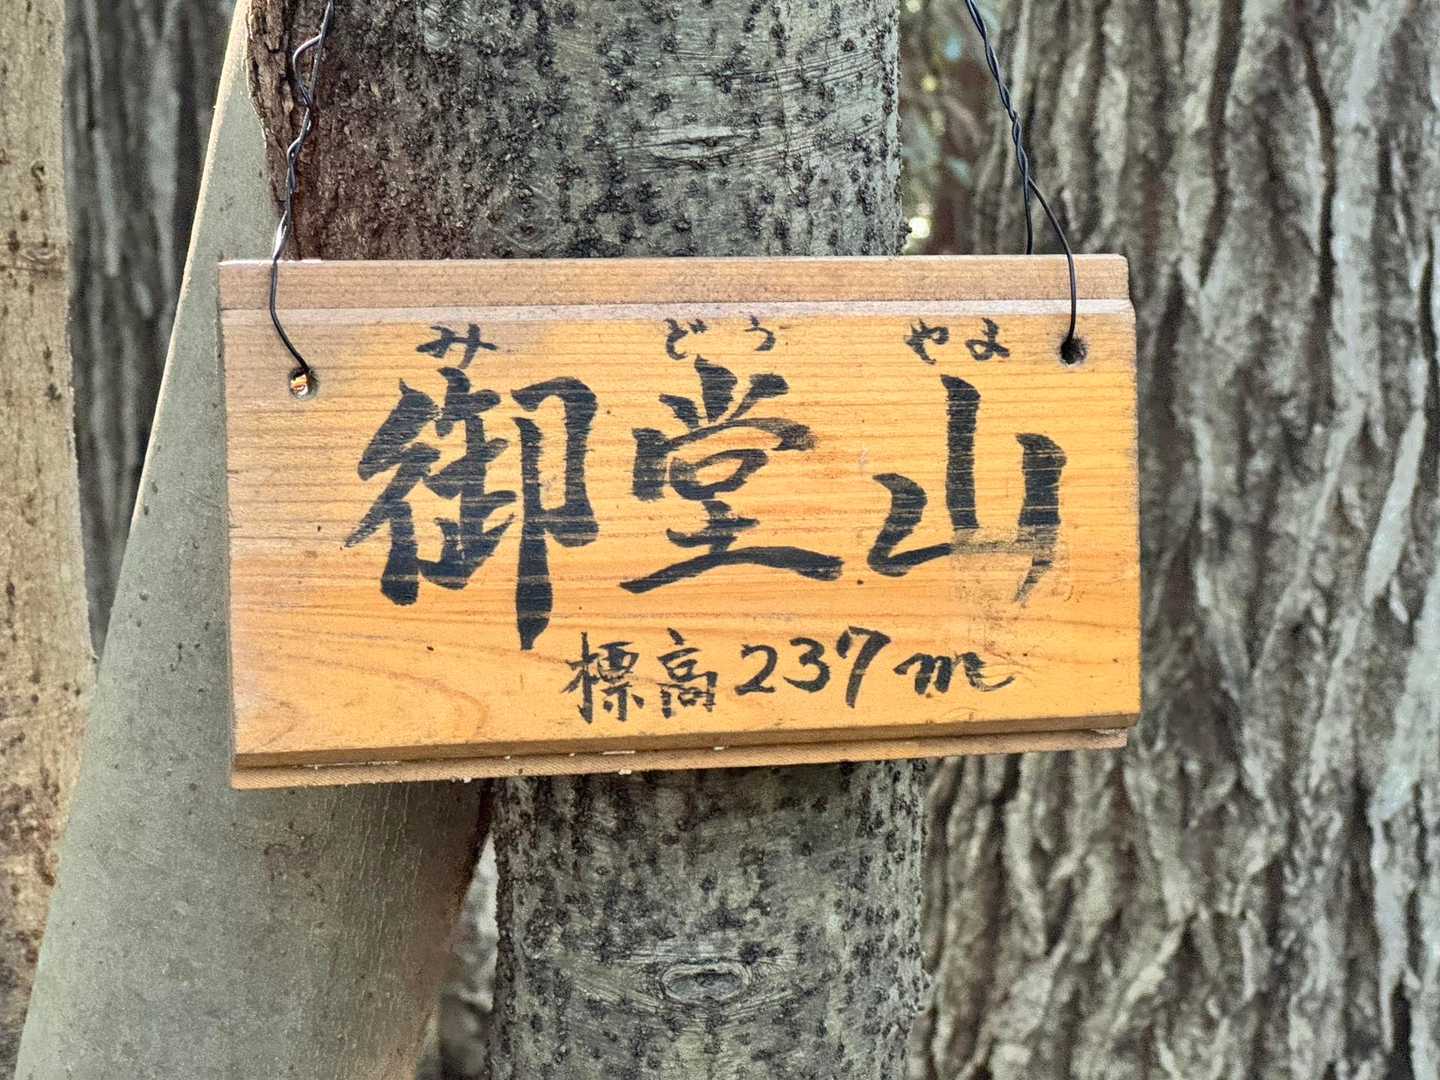 み どう やま
御堂山
標高237m